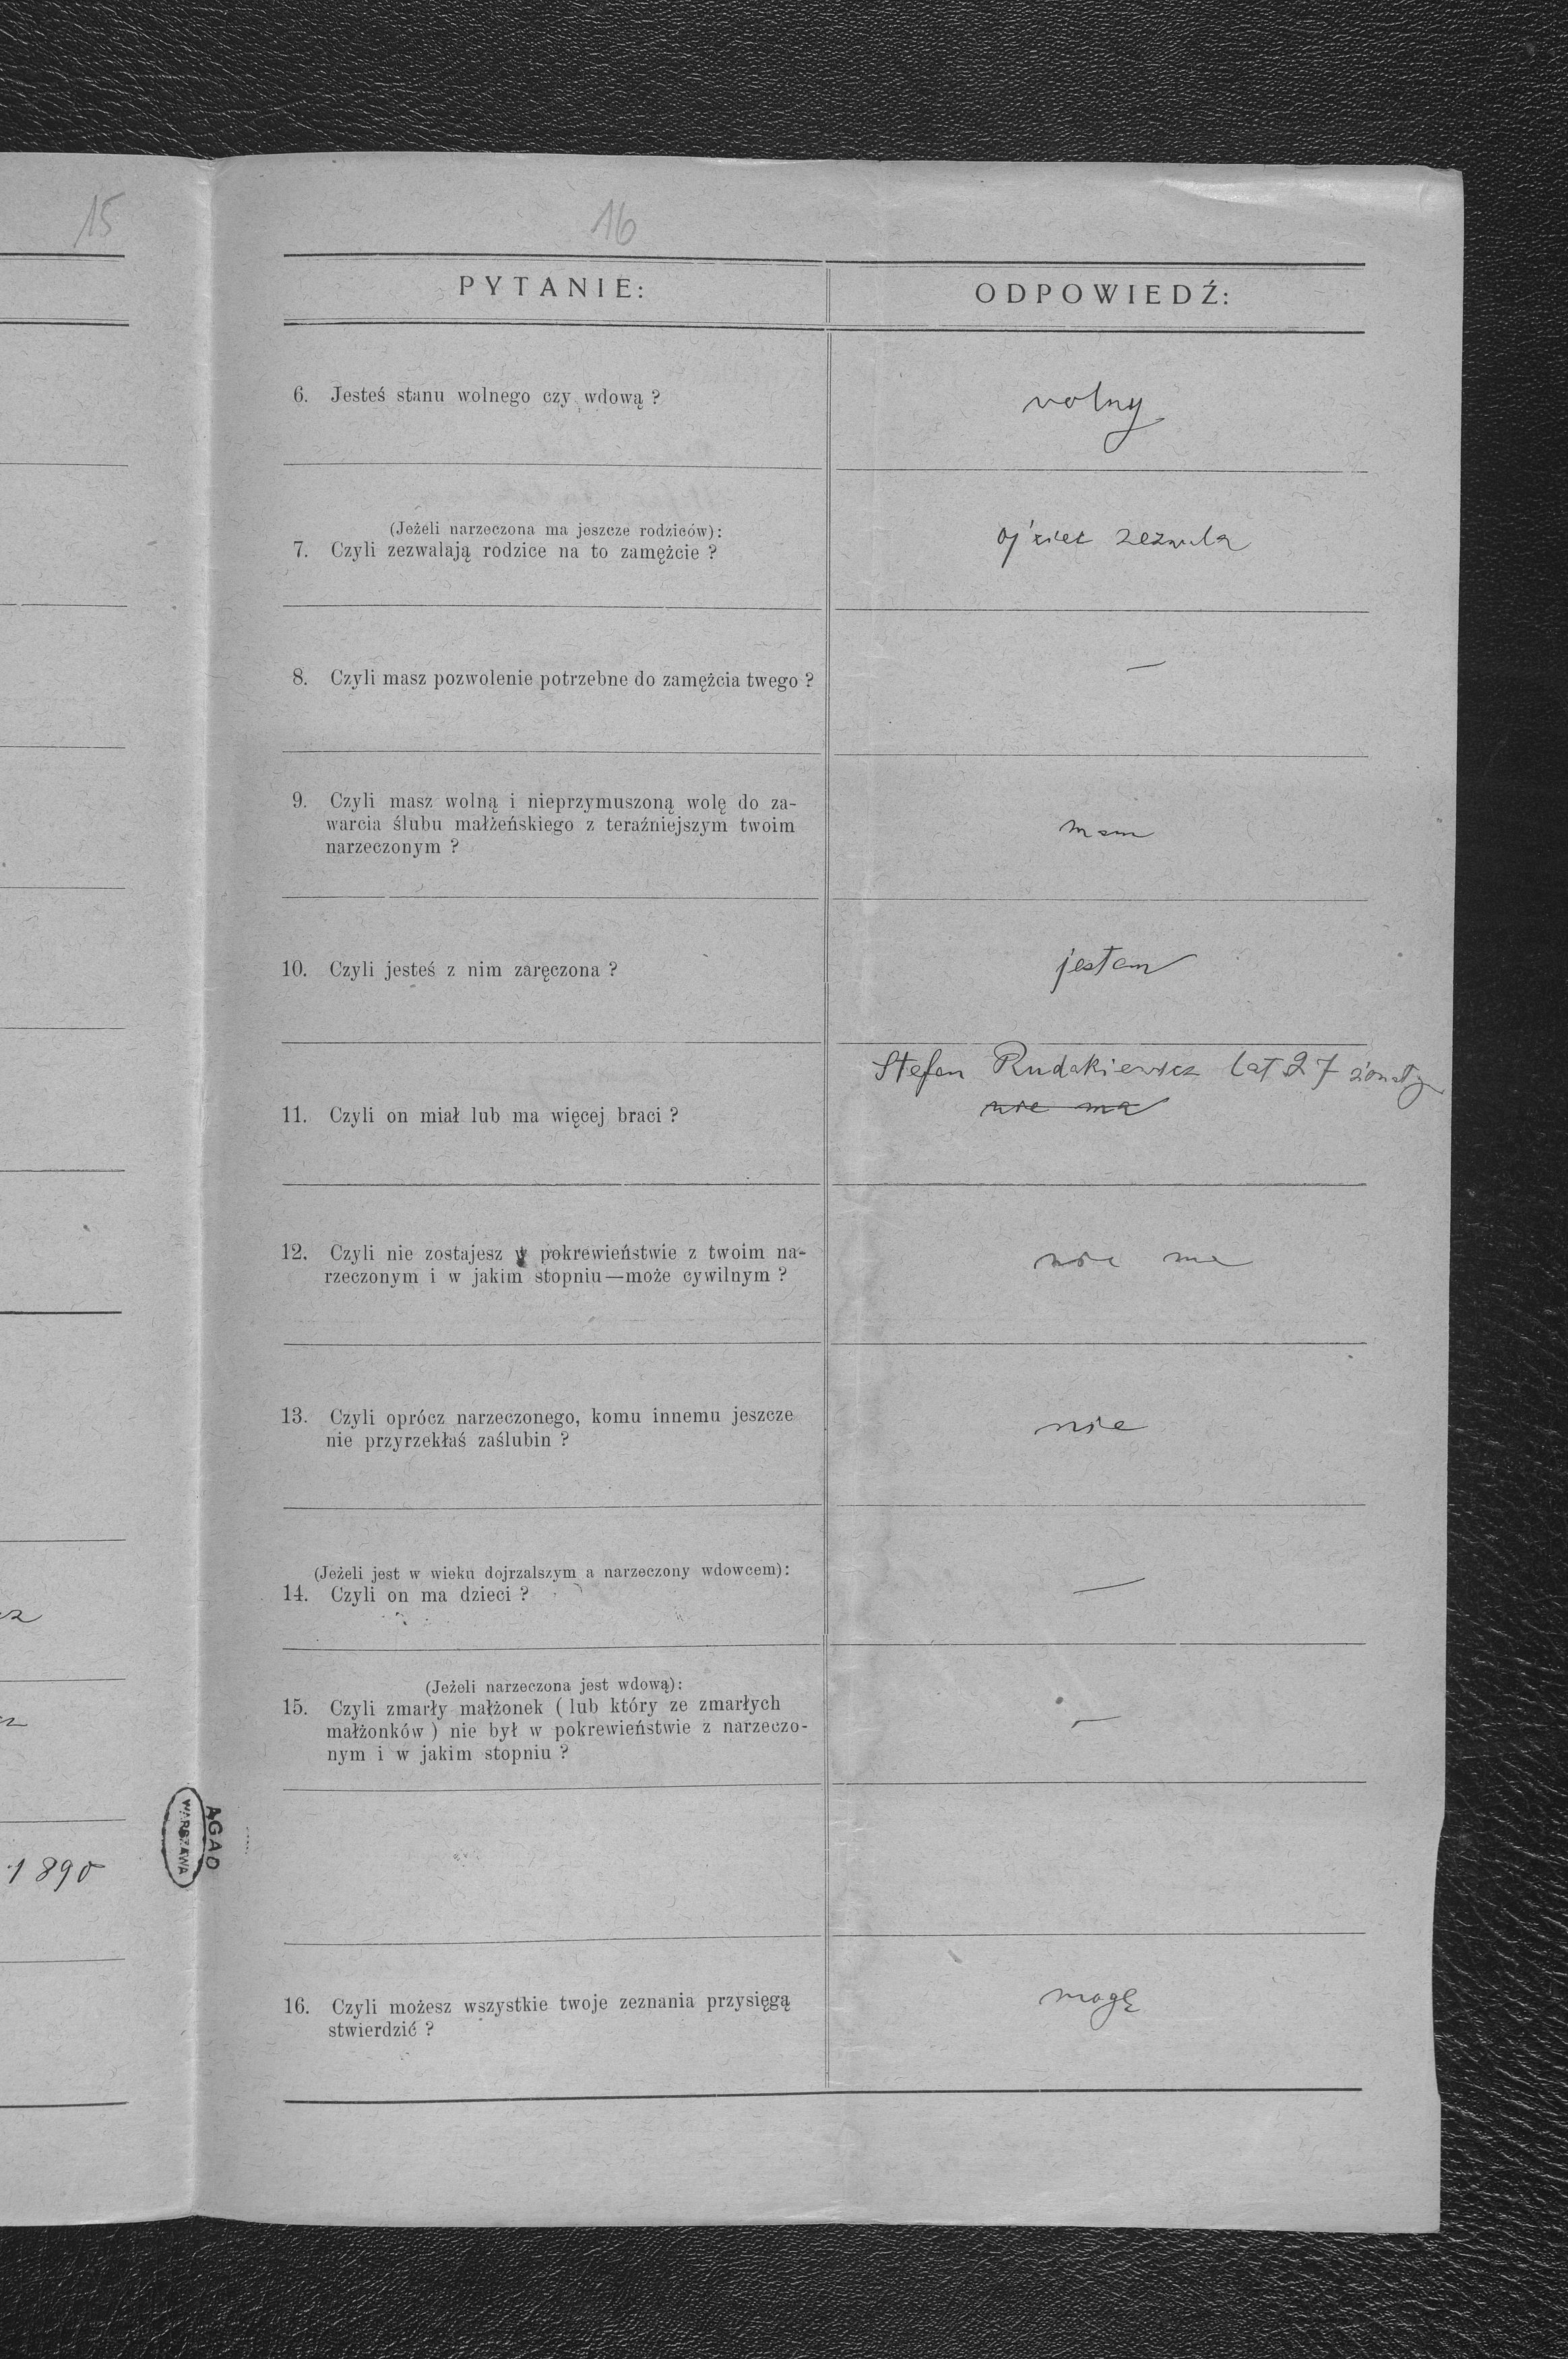 15
cz
cz
1890
AGAD
WARSZAWA
16
PYTANIE: ODPOWIEDŹ:
6. Jesteś stanu wolnego czy wdową ? wolny
(Jeżeli narzeczona ma jeszcze rodziców):
7. Czyli zezwalają rodzice na to zamężcie ? ojciec zezwala
8. Czyli masz pozwolenie potrzebne do zamężcia twego ? —
9. Czyli masz wolną i nieprzymuszoną wolę do za-
warcia ślubu małżeńskiego z teraźniejszym twoim mam
narzeczonym ?
10. Czyli jesteś z nim zaręczona ? jestem
Stefan Rudakiewicz lat 27 żonaty
11. Czyli on miał lub ma więcej braci ? nie ma
12. Czyli nie zostajesz w pokrewieństwie z twoim na- nie ma
rzeczonym i w jakim stopniu—może cywilnym ?
13. Czyli oprócz narzeczonego, komu innemu jeszcze nie
nie przyrzekłaś zaślubin ?
(Jeżeli jest w wieku dojrzalszym a narzeczony wdowcem):
14. Czyli on ma dzieci ? —
(Jeżeli narzeczona jest wdową):
15. Czyli zmarły małżonek ( lub który ze zmarłych
małżonków ) nie był w pokrewieństwie z narzeczo- —
nym i w jakim stopniu ?
16. Czyli możesz wszystkie twoje zeznania przysięgą mogę
stwierdzić ?